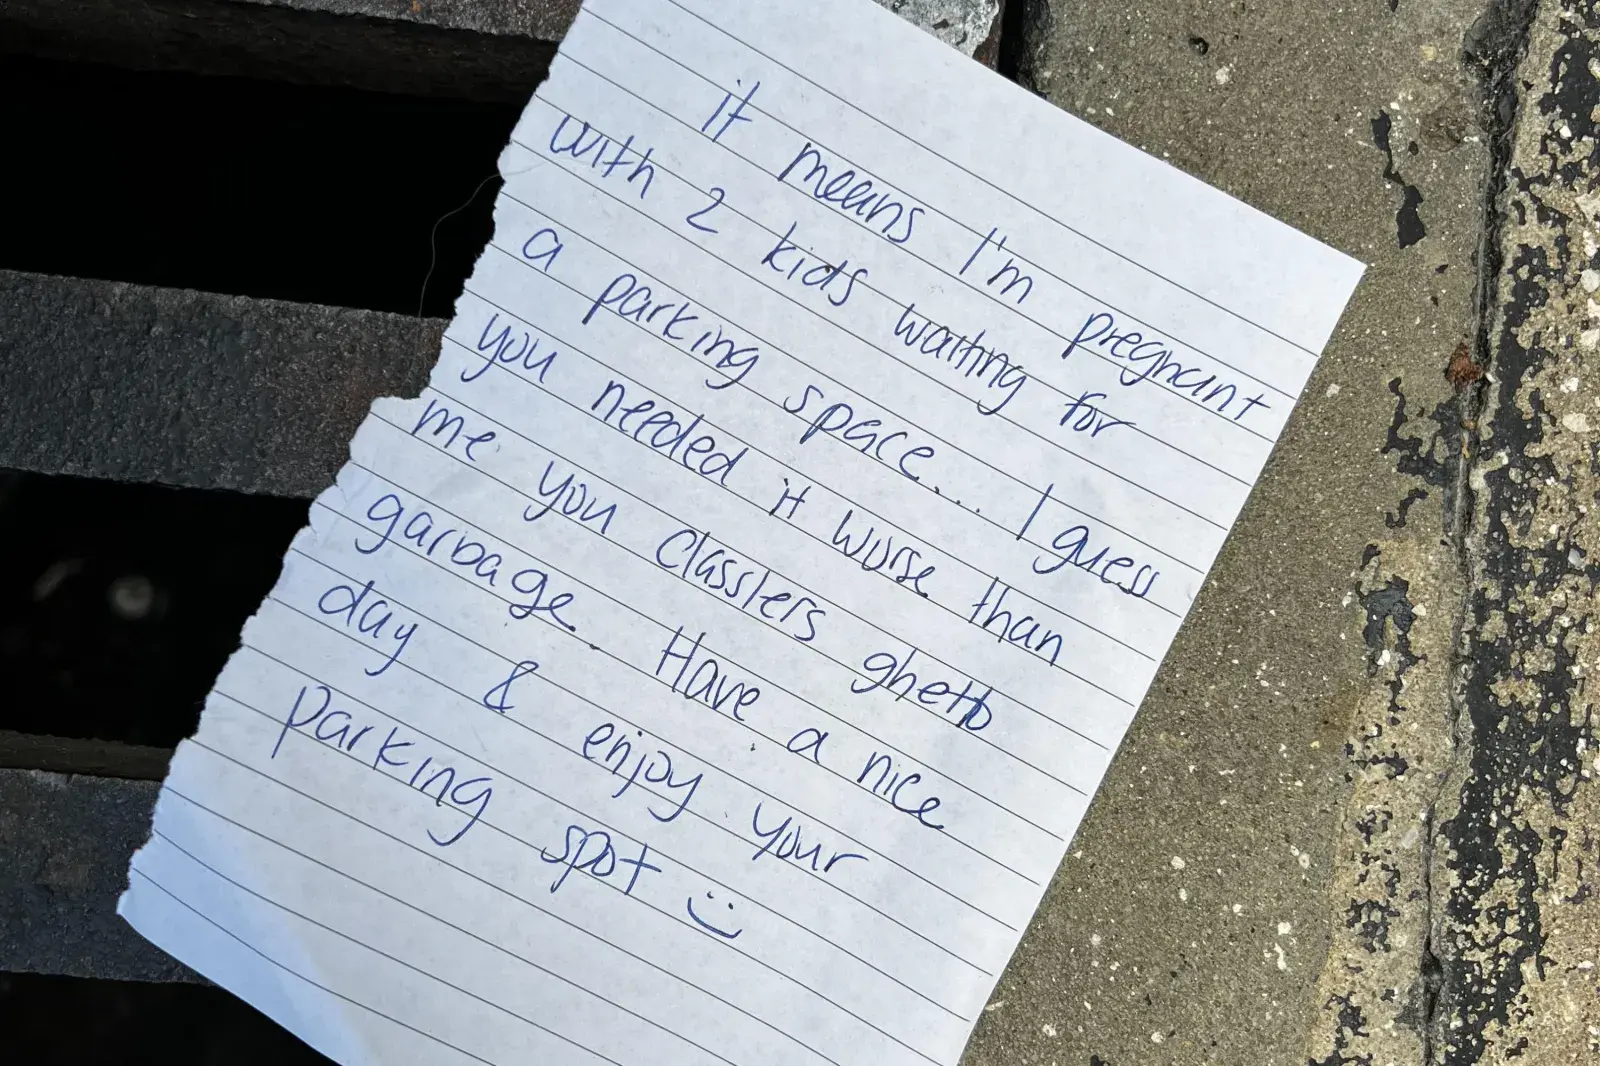 it means I'm pregnant
with 2 kids waiting for
a parking space... I guess
you needed it worse than
me you classless ghetto
garbage. Have a nice
day & enjoy your
parking spot :)